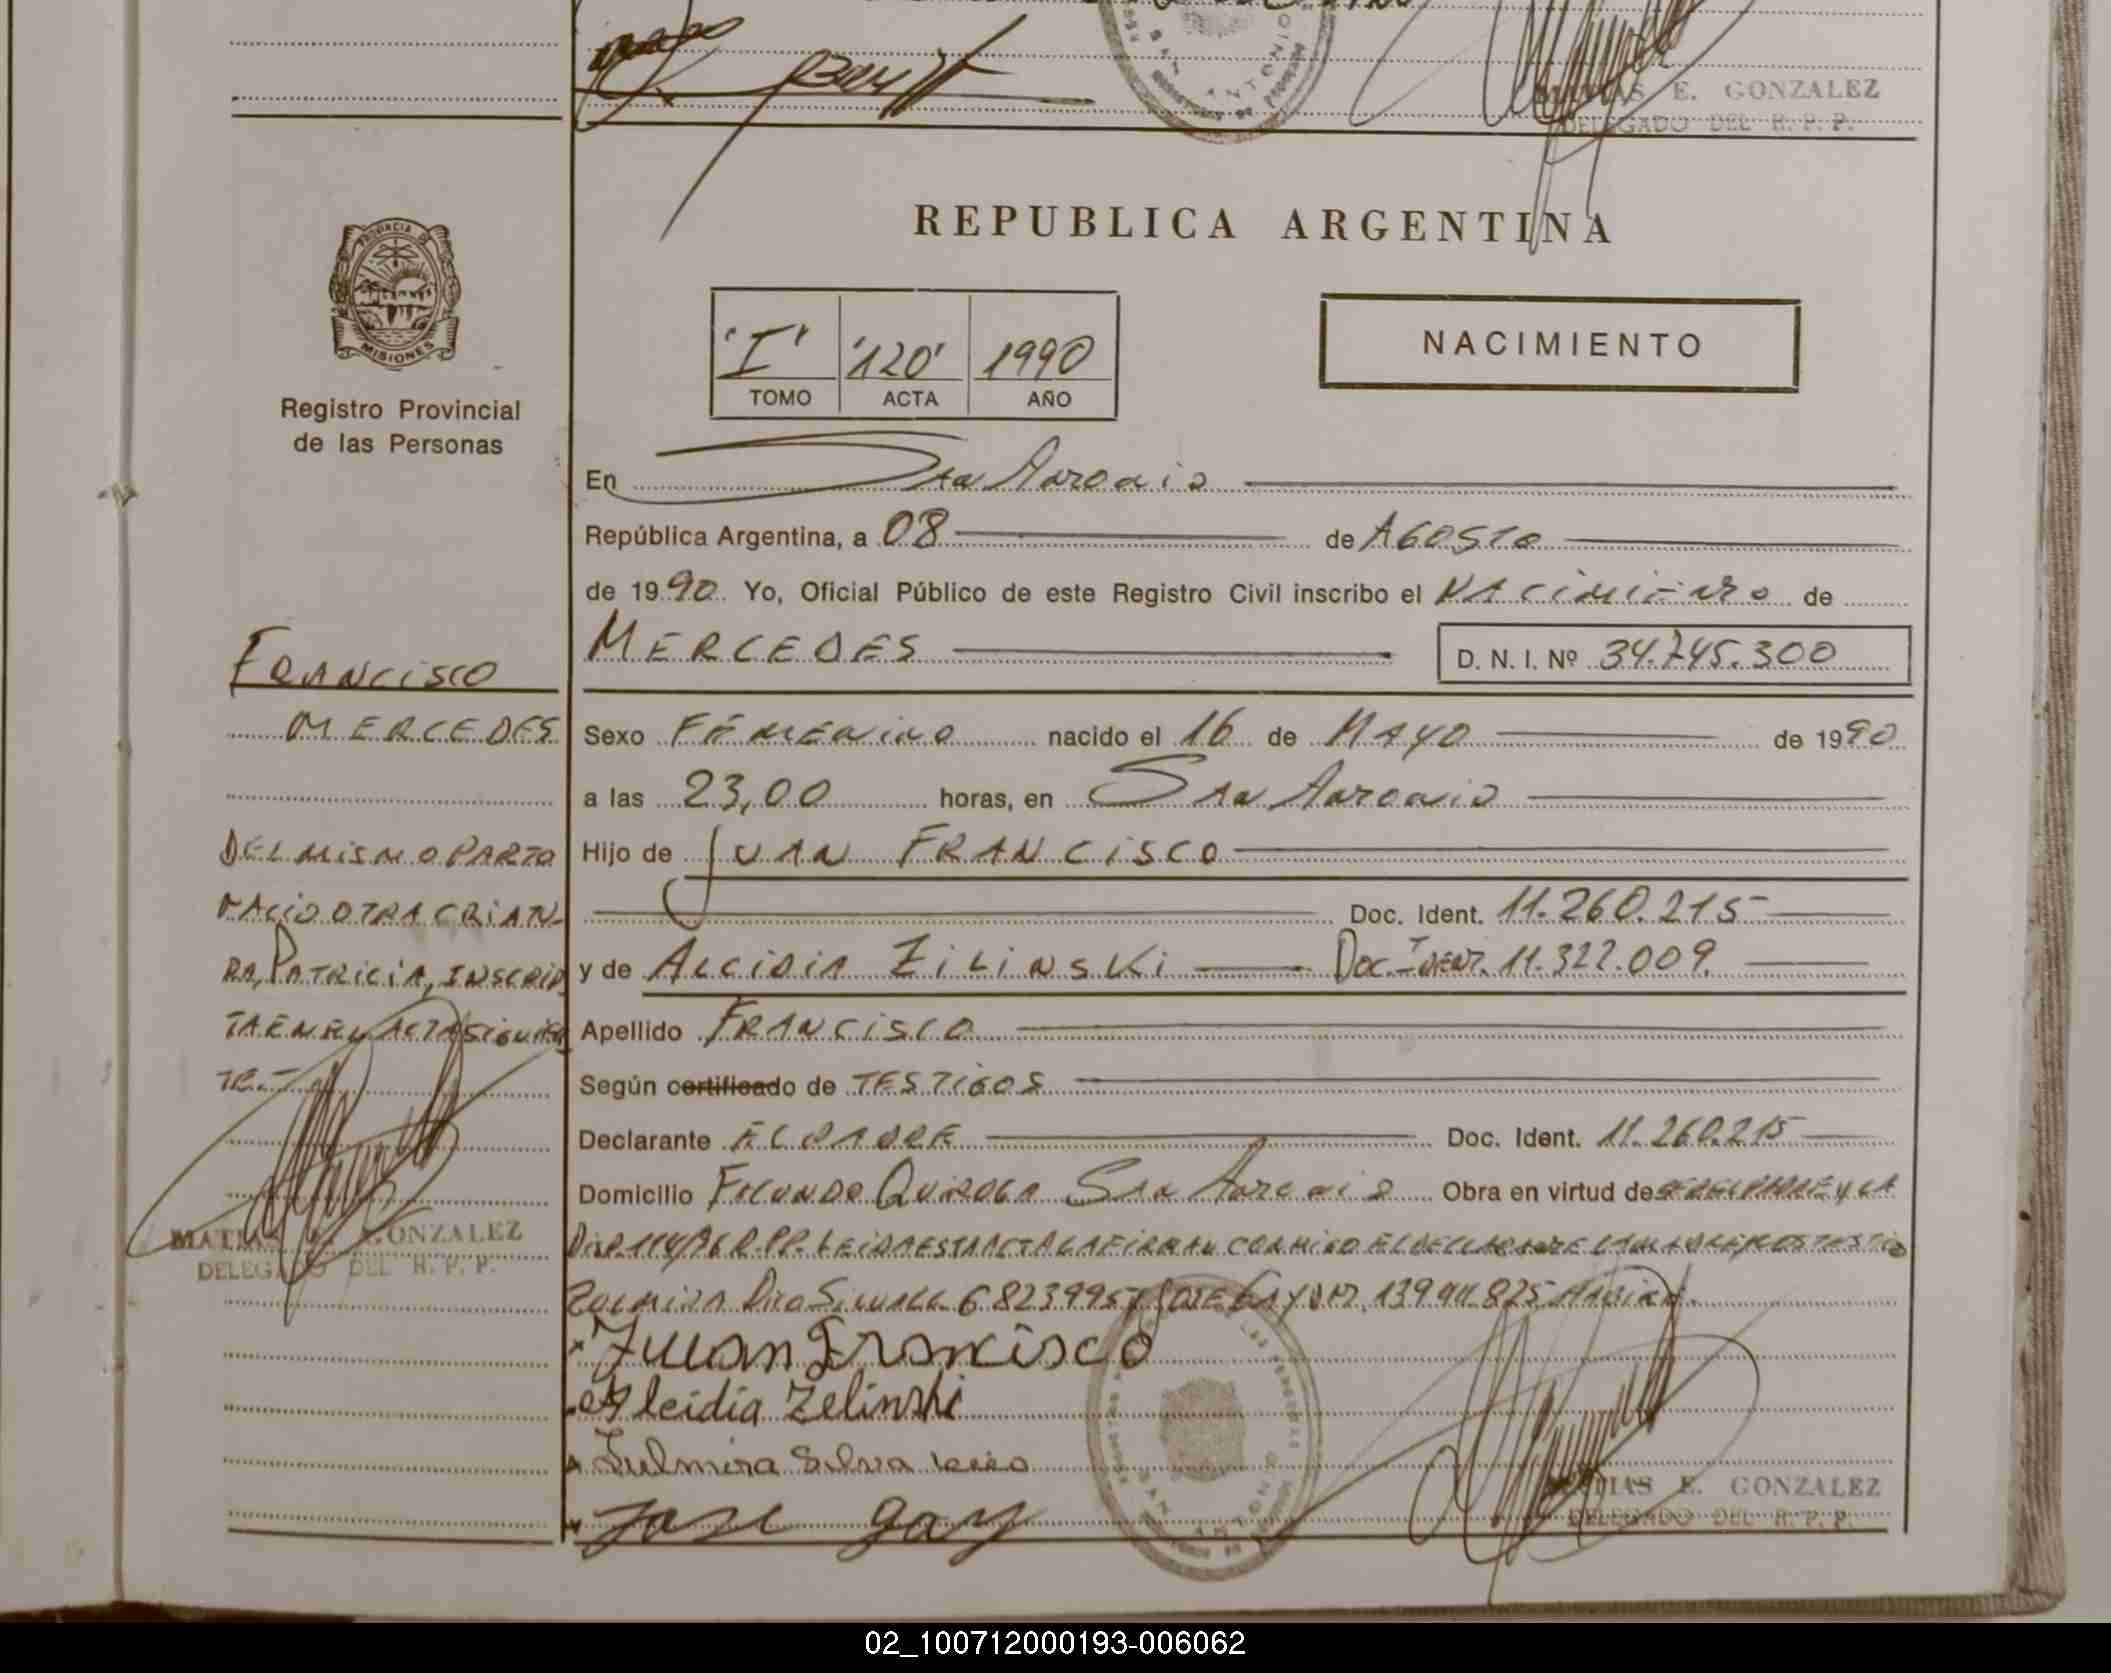 MATIAS E. GONZALEZ
DELEGADO DEL R. P. P.
PROVINCIA DE
MISIONES
Registro Provincial
de las Personas
REPUBLICA ARGENTINA
"I" "120" 1990
TOMO ACTA AÑO
NACIMIENTO
En San Antonio
República Argentina, a 08 de AGOSTO
de 1990 Yo, Oficial Público de este Registro Civil inscribo el NACIMIENTO de
MERCEDES D. N. I. Nº 34.745.300
FRANCISCO
MERCEDES
DEL MISMO PARTO
NACIO OTRA CRIATU-
RA, PATRICIA, INSCRIP
TA EN EL ACTA SIGUIEN
TE.-
MATIAS E. GONZALEZ
DELEGADO DEL R. P. P.
Sexo FEMENINO nacido el 16 de MAYO de 1990
a las 23,00 horas, en San Antonio
Hijo de JUAN FRANCISCO
Doc. Ident. 11.260.215
y de ALCIDIA ZILINSKI Doc. IDENT. 11.322.009.
Apellido FRANCISCO
Según certificado de TESTIGOS
Declarante EL PADRE Doc. Ident. 11.260.215
Domicilio FACUNDO QUIROGA San Antonio Obra en virtud de SER EL PADRE Y LA
LEIDA ESTA ACTA LA FIRMAN CONMIGO EL DECLARANTE LA MADRE
Juan Francisco
Aleidia Zelinski
Zulmira Silva
Jose Gay
MATIAS E. GONZALEZ
DELEGADO DEL R. P. P.
02_100712000193-006062